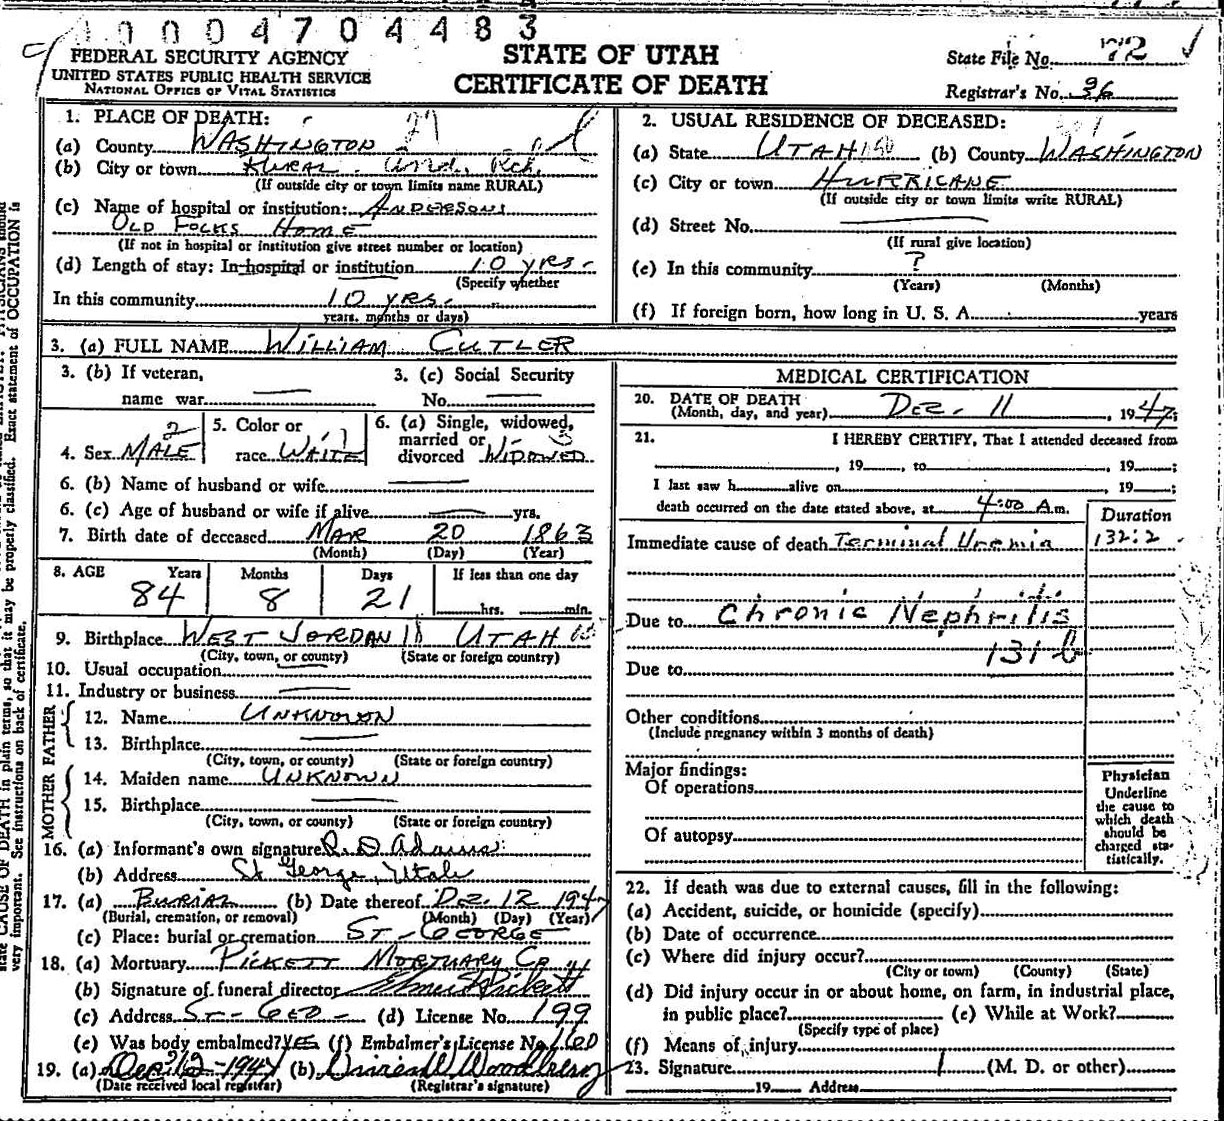 0004704483
FEDERAL SECURITY AGENCY
UNITED STATES PUBLIC HEALTH SERVICE
NATIONAL OFFICE OF VITAL STATISTICS
STATE OF UTAH
CERTIFICATE OF DEATH
State File No. 72
Registrar's No. 36
1. PLACE OF DEATH:
(a) County WASHINGTON 27
(b) City or town RURAL
(If outside city or town limits name RURAL)
(c) Name of hospital or institution: ANDERSONS
OLD FOLKS HOME
(If not in hospital or institution give street number or location)
(d) Length of stay: In hospital or institution 10 yrs.
(Specify whether
In this community 10 yrs.
years, months or days)
2. USUAL RESIDENCE OF DECEASED:
(a) State UTAH (b) County WASHINGTON
(c) City or town HURRICANE
(If outside city or town limits write RURAL)
(d) Street No.
(If rural give location)
(e) In this community ?
(Years) (Months)
(f) If foreign born, how long in U. S. A. years
3. (a) FULL NAME WILLIAM CUTLER
3. (b) If veteran,
name war
3. (c) Social Security
No.
4. Sex MALE 2
5. Color or
race WHITE 1
6. (a) Single, widowed,
married or
divorced WIDOWED 3
6. (b) Name of husband or wife
6. (c) Age of husband or wife if alive yrs.
7. Birth date of deceased MAR 20 1863
(Month) (Day) (Year)
8. AGE Years Months Days If less than one day
84 8 21 hrs. min.
9. Birthplace WEST JORDAN UTAH
(City, town, or county) (State or foreign country)
10. Usual occupation
11. Industry or business
FATHER
12. Name UNKNOWN
13. Birthplace
(City, town, or county) (State or foreign country)
MOTHER
14. Maiden name UNKNOWN
15. Birthplace
(City, town, or county) (State or foreign country)
16. (a) Informant's own signature R. D Adams
(b) Address St George, Utah
17. (a) BURIAL (b) Date thereof DEC 12 1947
(Burial, cremation, or removal) (Month) (Day) (Year)
(c) Place: burial or cremation ST-GEORGE
18. (a) Mortuary PICKETT MORTUARY
(b) Signature of funeral director Elmer Pickett
(c) Address ST-GEO- (d) License No. 199
(e) Was body embalmed? YES (f) Embalmer's License No. 160
19. (a) Dec 12-1947 (b)
(Date received local registrar) (Registrar's signature)
MEDICAL CERTIFICATION
20. DATE OF DEATH
(Month, day, and year) DEC. 11, 1947;
21. I HEREBY CERTIFY, That I attended deceased from
, 19 , to , 19 ;
I last saw h alive on , 19 ;
death occurred on the date stated above, at 4:00 A.m.
Duration
Immediate cause of death Terminal Uremia 132:2
Due to Chronic Nephritis
131 b
Due to
Other conditions
(Include pregnancy within 3 months of death)
Major findings:
Of operations
Of autopsy
Physician
Underline
the cause to
which death
should be
charged sta-
tistically.
22. If death was due to external causes, fill in the following:
(a) Accident, suicide, or homicide (specify)
(b) Date of occurrence
(c) Where did injury occur?
(City or town) (County) (State)
(d) Did injury occur in or about home, on farm, in industrial place,
in public place? (e) While at Work?
(Specify type of place)
(f) Means of injury
23. Signature (M. D. or other)
19 Address
state CAUSE OF DEATH in plain terms, so that it may be properly classified. Exact statement of OCCUPATION is
very important. See instructions on back of certificate.